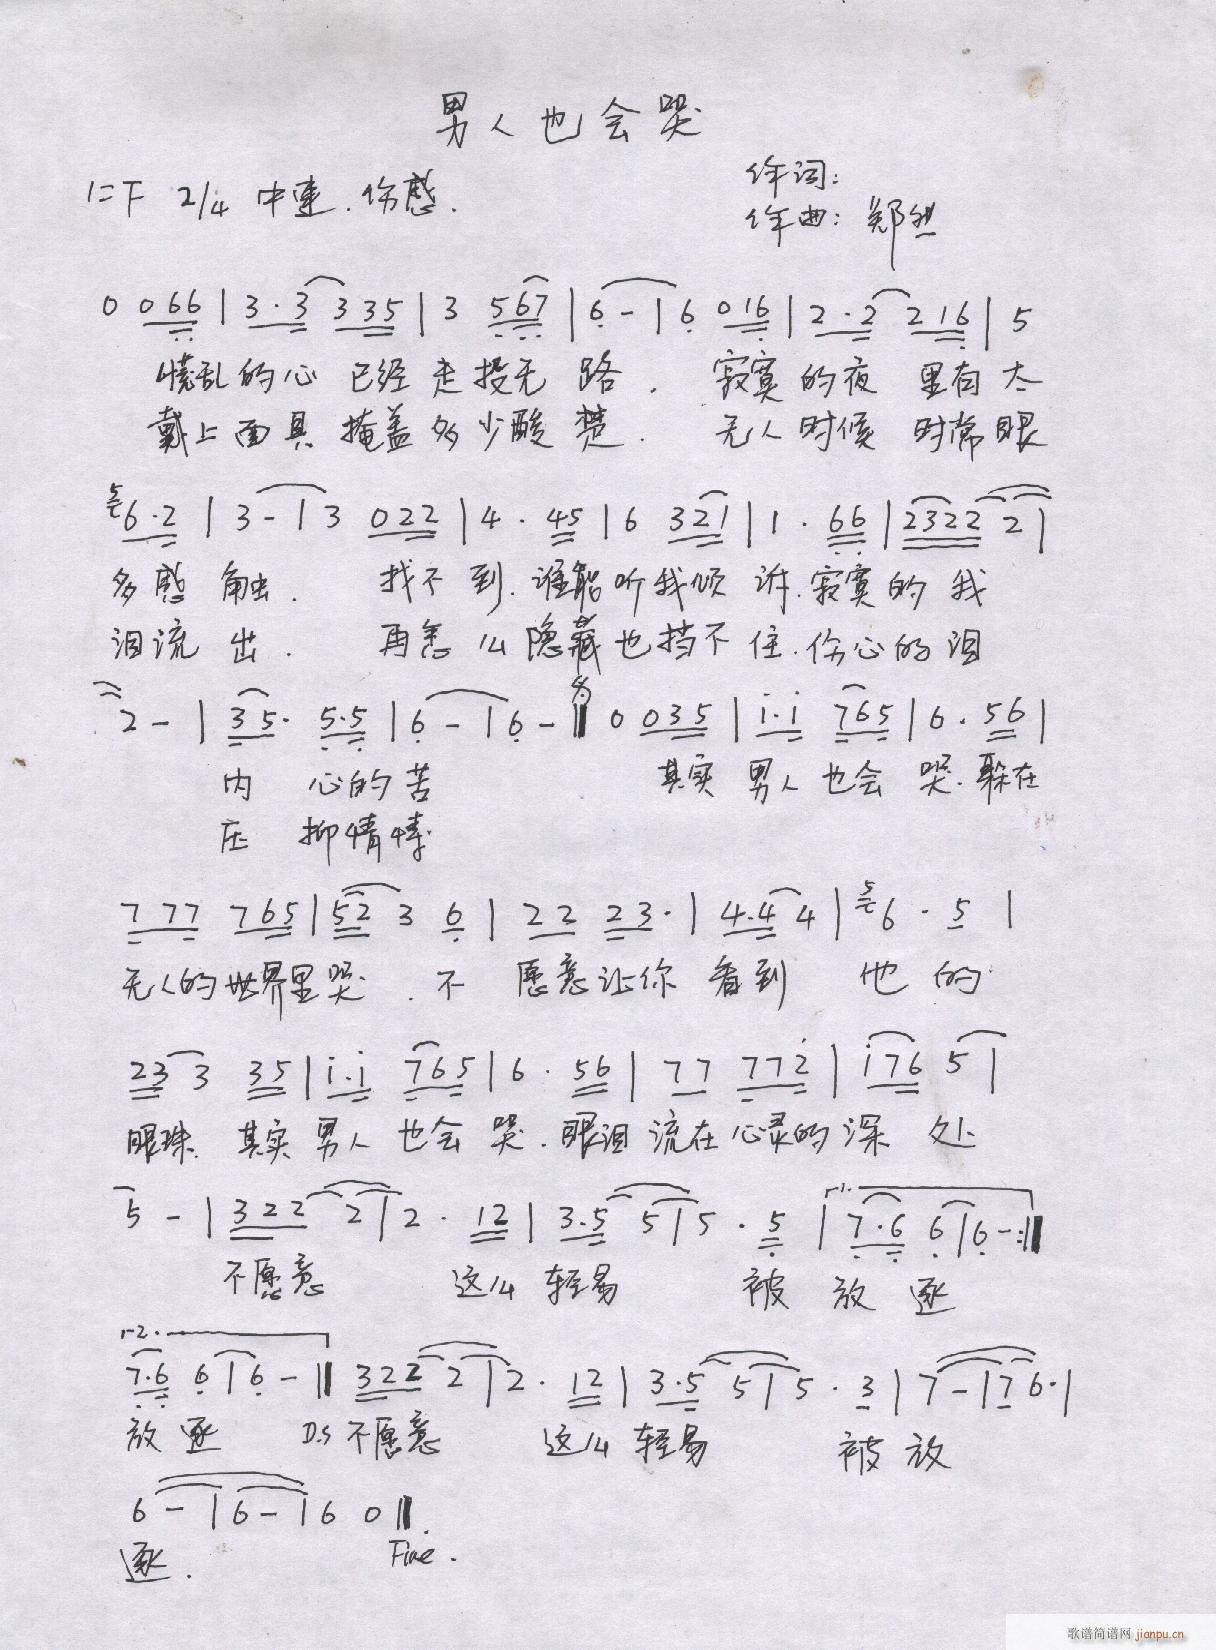 男人也会哭
1=F 2/4 中速.伤感.
作词:
作曲: 郑
0 066 | 3·3 335 | 3 567 | 6 - | 6 016 | 2·2 216 | 5
慌乱的心 已经走投无路. 寂寞的夜 里有太
戴上面具 掩盖多少酸楚. 无人时候 时常眼
5 6·2 | 3 - | 3 022 | 4·45 | 6 321 | 1·66 | 2322 2 |
多感触. 找不到.谁能听我倾诉.寂寞的我
泪流出. 再怎么隐藏也挡不住.伤心的泪
2 - | 35· 5·5 | 6 - | 6 - ‖ 0 035 | i·i 765 | 6·56 |
内 心的苦 其实男人也会哭.躲在
压 抑情愫
777 765 | 52 3 6 | 22 23· | 4·4 4 | 5 6·5 |
无人的世界里哭.不愿意让你看到 他的
23 3 35 | i·i 765 | 6·56 | 77 772 | i76 5 |
眼珠.其实男人也会哭.眼泪流在心灵的深处
5 - | 322 2 | 2·12 | 3·5 5 | 5·5 | 1. 7·6 6 | 6 - :‖
不愿意 这么轻易 被放逐
2.
7·6 6 | 6 - ‖ 322 2 | 2·12 | 3·5 5 | 5·3 | 7 - | 7 6· |
放逐 D.S 不愿意 这么轻易 被放
6 - | 6 - | 6 0 ‖
逐. Fine.
歌谱简谱网 jianpu.cn